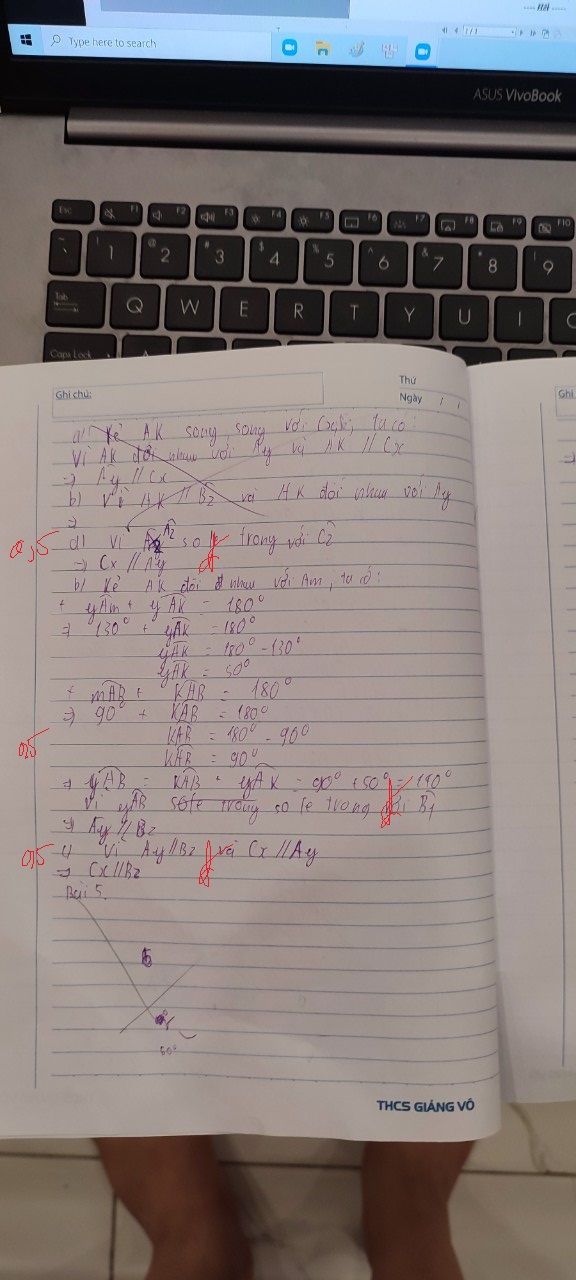 Hết
Type here to search
1/1
ASUS VivoBook
Esc F1 F2 F3 F4 F5 F6 F7 F8 F9 F10
~ ` ! 1 @ 2 # 3 $ 4 % 5 ^ 6 & 7 * 8 ( 9
Tab Q W E R T Y U I
Caps Lock
Ghi chú:
Thứ
Ngày / /
Ghi
a) Kẻ AK song song với Cx, ta có:
Vì AK đối nhau với Ay và AK // Cx
=> Ay // Cx
b) Vì AK // Bz và AK đối nhau với Ay
=>
0,5
a) Vì A2 so le trong với C2
=> Cx // Ay
b) Kẻ AK đối nhau với Am, ta có:
+ yAm + yAK = 180°
=> 130° + yAK = 180°
yAK = 180° - 130°
yAK = 50°
+ mAB + KAB = 180°
=> 90° + KAB = 180°
0,5
KAB = 180° - 90°
KAB = 90°
=> yAB = KAB + yAK = 90° + 50° = 140°
Vì yAB so le trong so le trong với B1
=> Ay // Bz
0,5
c) Vì Ay // Bz và Cx // Ay
=> Cx // Bz
Bài 5.
THCS GIẢNG VÕ